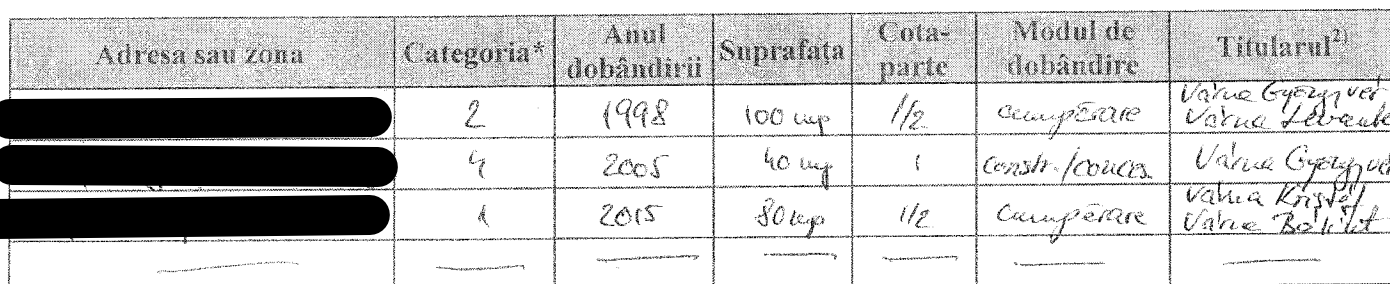 Adresa sau zona Categoria* Anul dobândirii Suprafața Cota-parte Modul de dobândire Titularul2)
2 1998 100 mp 1/2 cumpărare Várna Gyöngyvér Várna Levente
4 2005 40 mp 1 constr./conces. Várna Gyöngyvér
1 2015 80 mp 1/2 cumpărare Várna Kristóf Várna